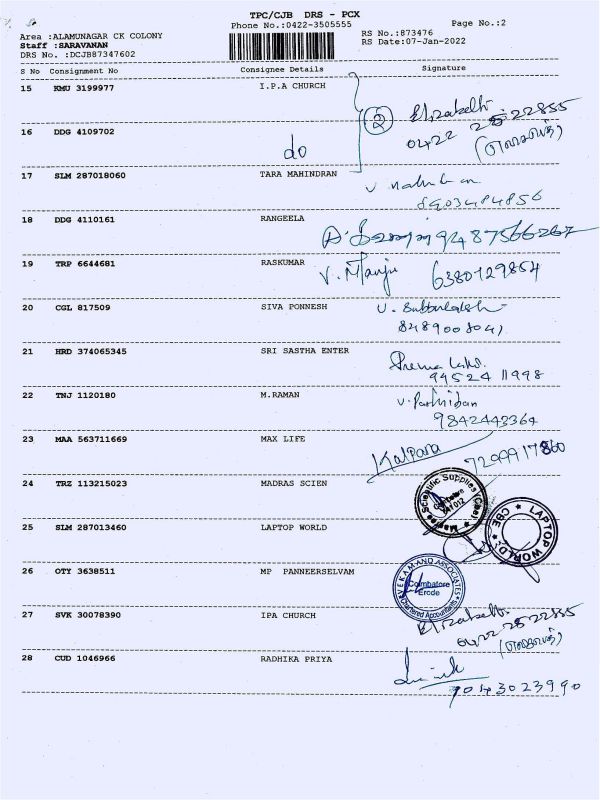 TPC/CJB DRS - PCX
Phone No.:0422-3505555
Page No.:2
Area :ALAMUNAGAR CK COLONY
Staff :SARAVANAN
DRS No. :DCJB87347602
RS No.:873476
RS Date:07-Jan-2022
S No Consignment No Consignee Details Signature
15 KMU 3199977 I.P.A CHURCH
② Elizabeth
0422 2522855
16 DDG 4109702 do
17 SLM 287018060 TARA MAHINDRAN
8903484856
18 DDG 4110161 RANGEELA
9487566267
19 TRP 6644681 RASKUMAR V. Manju 6380129854
20 CGL 817509 SIVA PONNESH
8489008041
21 HRD 374065345 SRI SASTHA ENTER
99524 11998
22 TNJ 1120180 M.RAMAN
9842443364
23 MAA 563711669 MAX LIFE Kalpana 7299917860
24 TRZ 113215023 MADRAS SCIEN
Scientific Supplies
25 SLM 287013460 LAPTOP WORLD
LAPTOP WORLD CBE
26 OTY 3638511 MP PANNEERSELVAM
VEKAM AND ASSOCIATES
Coimbatore
Erode
Chartered Accountants
27 SVK 30078390 IPA CHURCH Elizabeth
0422 2522855
28 CUD 1046966 RADHIKA PRIYA
7043023990